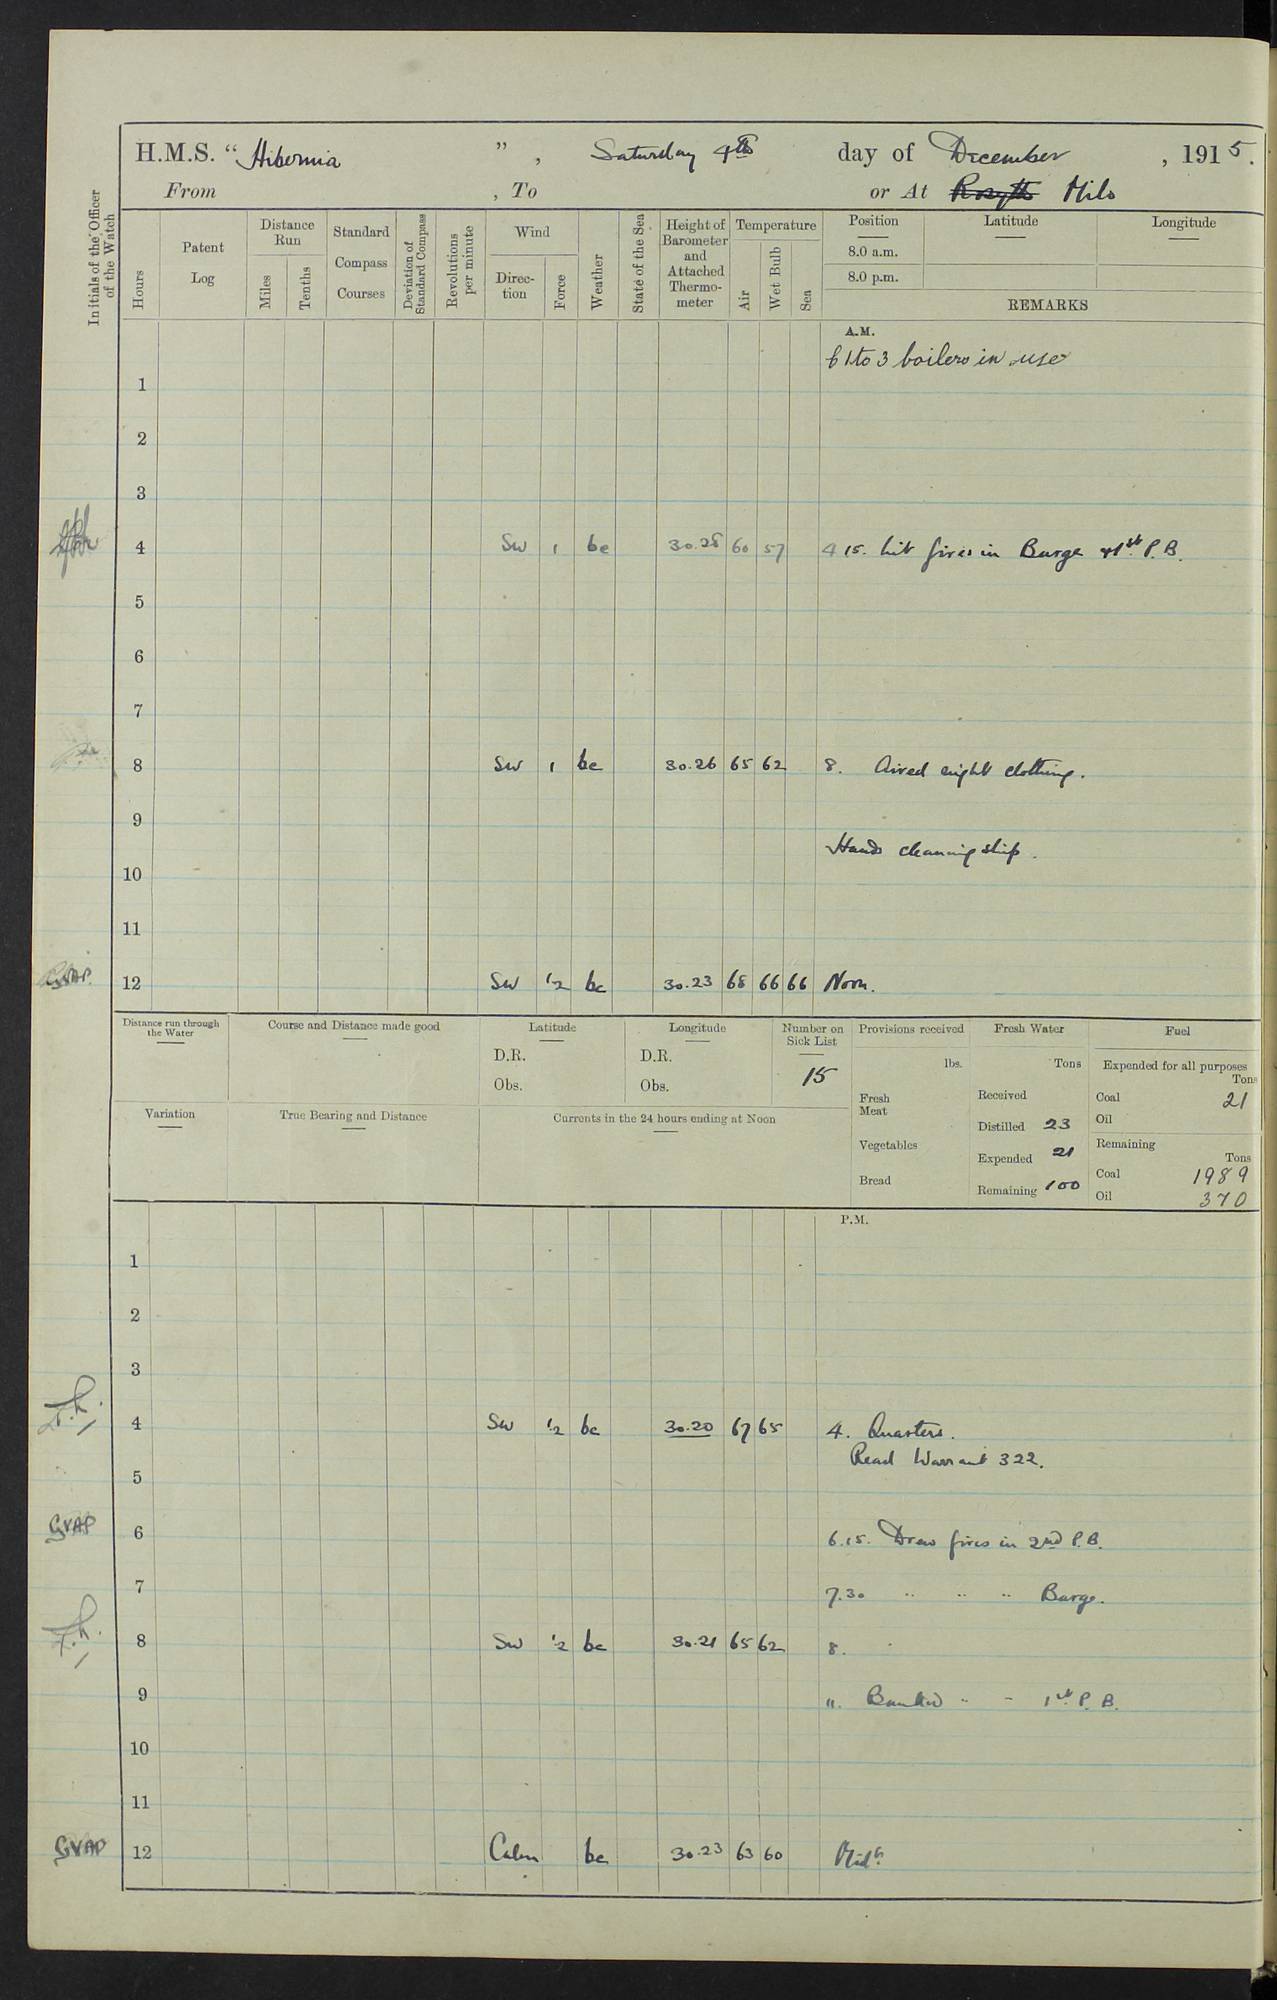 H.M.S. “Hibernia”, Saturday 4th day of December, 1915.
From , To or At Rosyth Milo
Initials of the Officer of the Watch
Hours
Patent Log
Distance Run
Miles
Tenths
Standard Compass Courses
Deviation of Standard Compass
Revolutions per minute
Wind
Direc-tion
Force
Weather
State of the Sea
Height of Barometer and Attached Thermo-meter
Temperature
Air
Wet Bulb
Sea
Position Latitude Longitude
8.0 a.m.
8.0 p.m.
REMARKS
A.M.
1 to 3 boilers in use
1
2
3
4 SW 1 bc 30.28 60 57 4 15. Lit fires in Barge & 1st P.B.
5
6
7
8 SW 1 bc 30.26 65 62 8. Aired night clothing.
9
Hands cleaning ship.
10
11
GVAP. 12 SW ½ bc 30.23 68 66 66 Noon.
Distance run through the Water
Course and Distance made good
Latitude
D.R.
Obs.
Longitude
D.R.
Obs.
Number on Sick List
15
Provisions received
lbs.
Fresh Meat
Vegetables
Bread
Fresh Water
Tons
Received
Distilled 23
Expended 21
Remaining 100
Fuel
Expended for all purposes
Tons
Coal 21
Oil
Remaining
Tons
Coal 1989
Oil 370
Variation
True Bearing and Distance
Currents in the 24 hours ending at Noon
P.M.
1
2
3
4 SW ½ bc 30.20 67 65 4. Quarters.
Read Warrant 322.
5
GVAP 6 6.15. Drew fires in 2nd P.B.
7 7.30 " " " Barge.
8 SW ½ bc 30.21 65 62 8.
9 ". Banked " " 1st P.B.
10
11
GVAP 12 Calm bc 30.23 63 60 Midt.